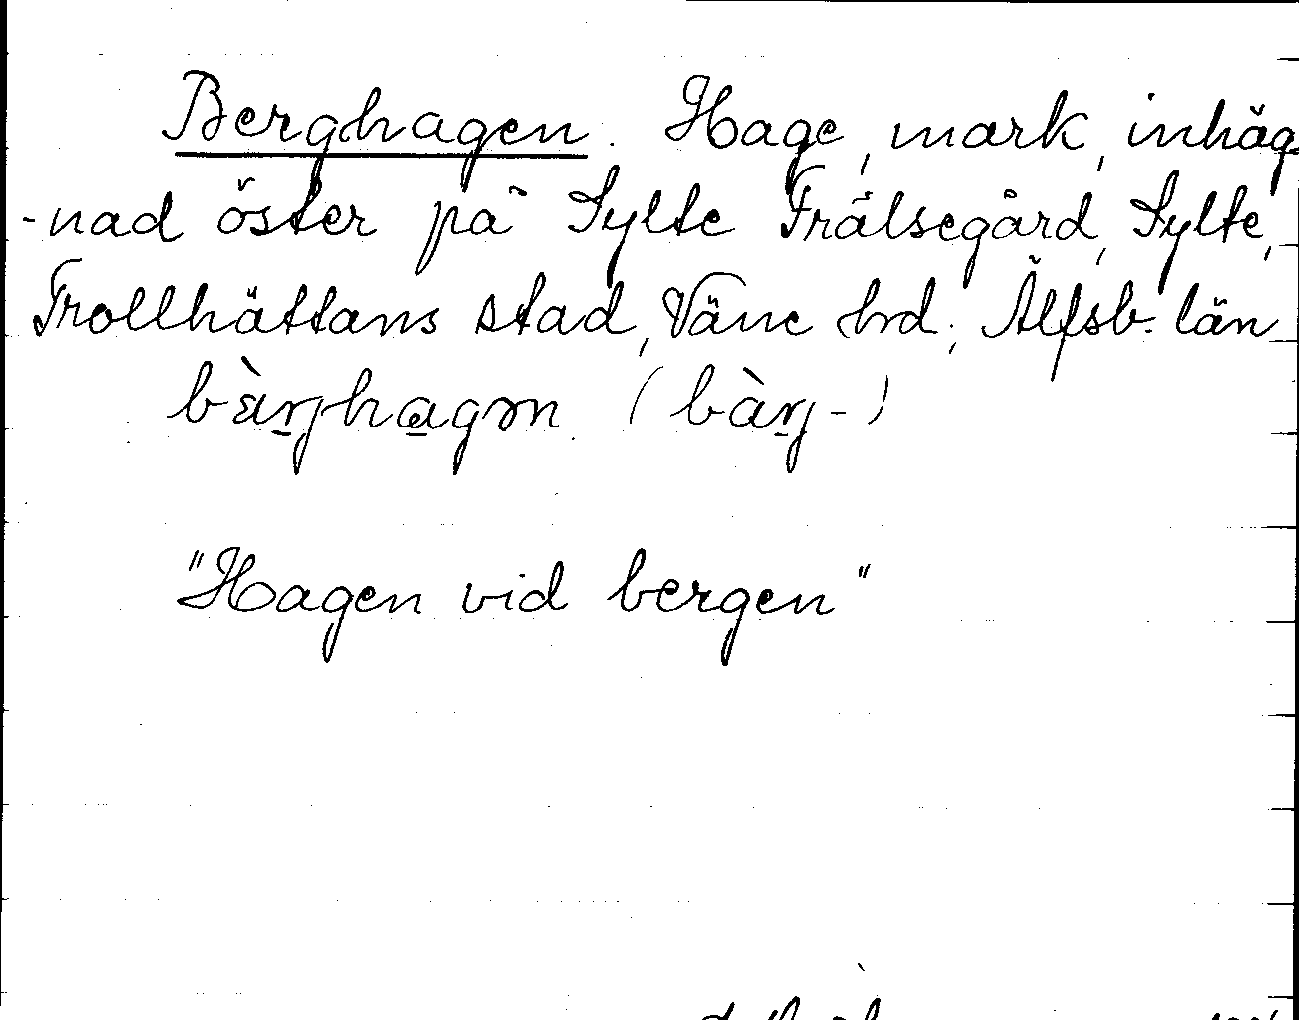 Berghagen. Hage, mark, inhäg-
-nad öster på Sylte Frälsegård, Sylte,
Trollhättans stad, Väne hrd, Älfsb. län
bàŋhagən (bàŋ-)
"Hagen vid bergen"